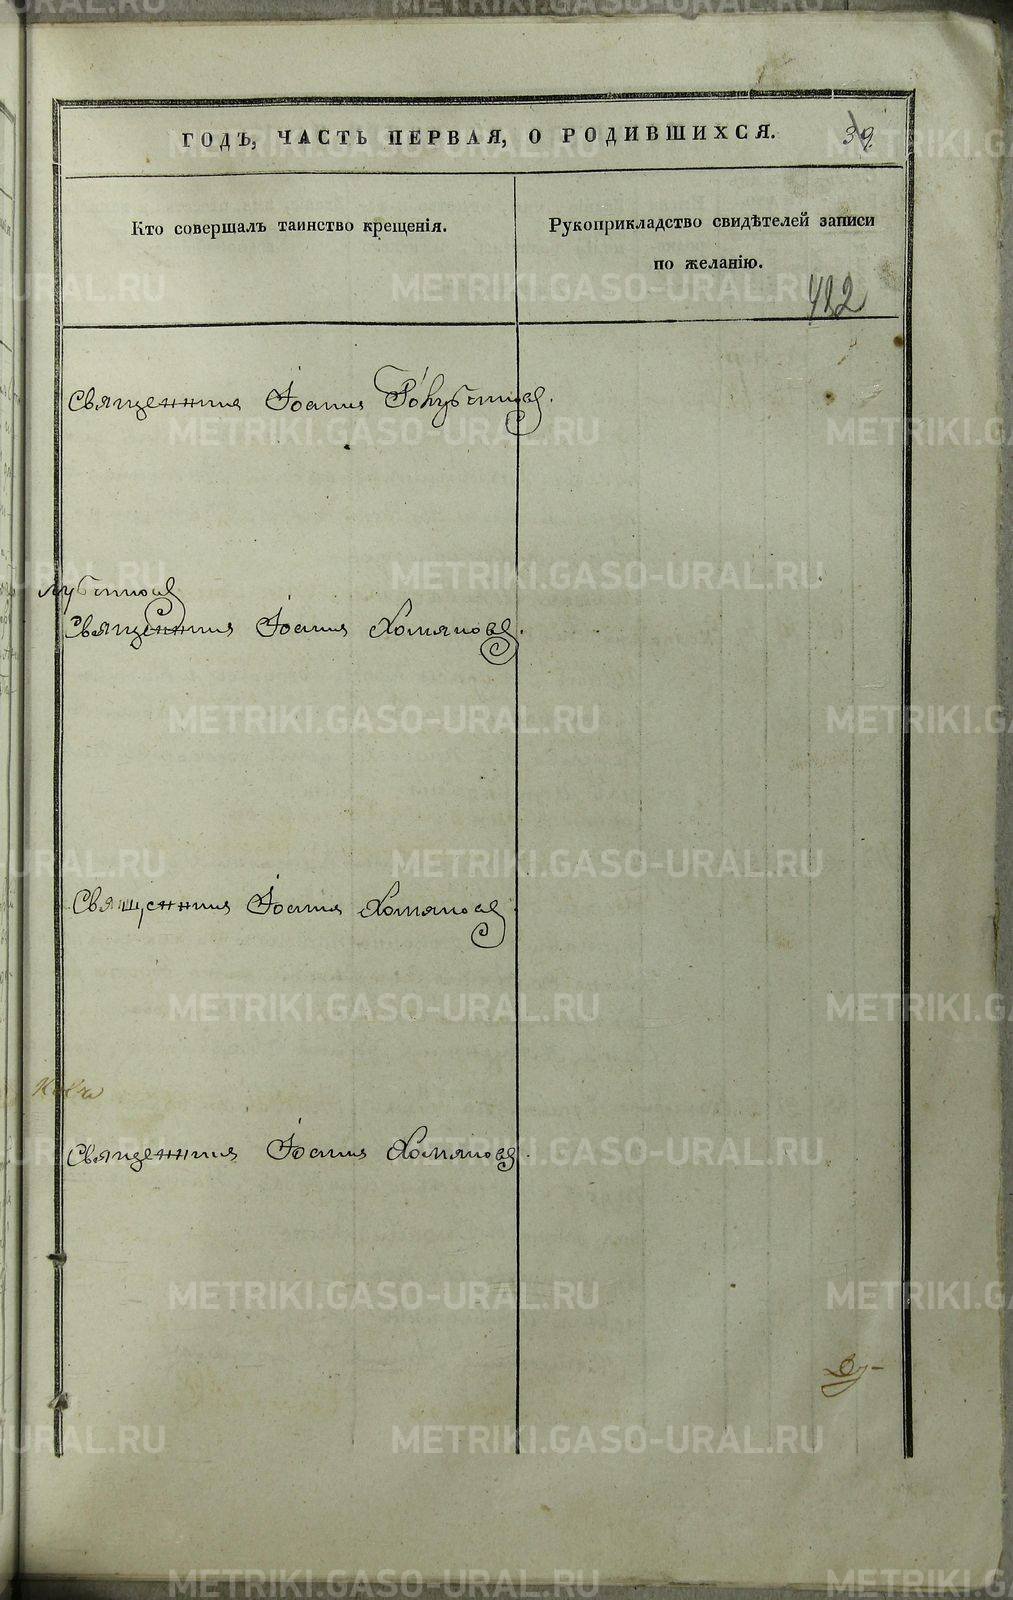 ГОДЪ, ЧАСТЬ ПЕРВАЯ, О РОДИВШИХСЯ. 39.
Кто совершалъ таинство крещенія.
Рукоприкладство свидѣтелей записи
по желанію.
422
Священникъ Іоаннъ
Священникъ Іоаннъ Хомяковъ.
Священникъ Іоаннъ Хомяковъ.
Священникъ Іоаннъ Хомяковъ.
METRIKI.GASO-URAL.RU